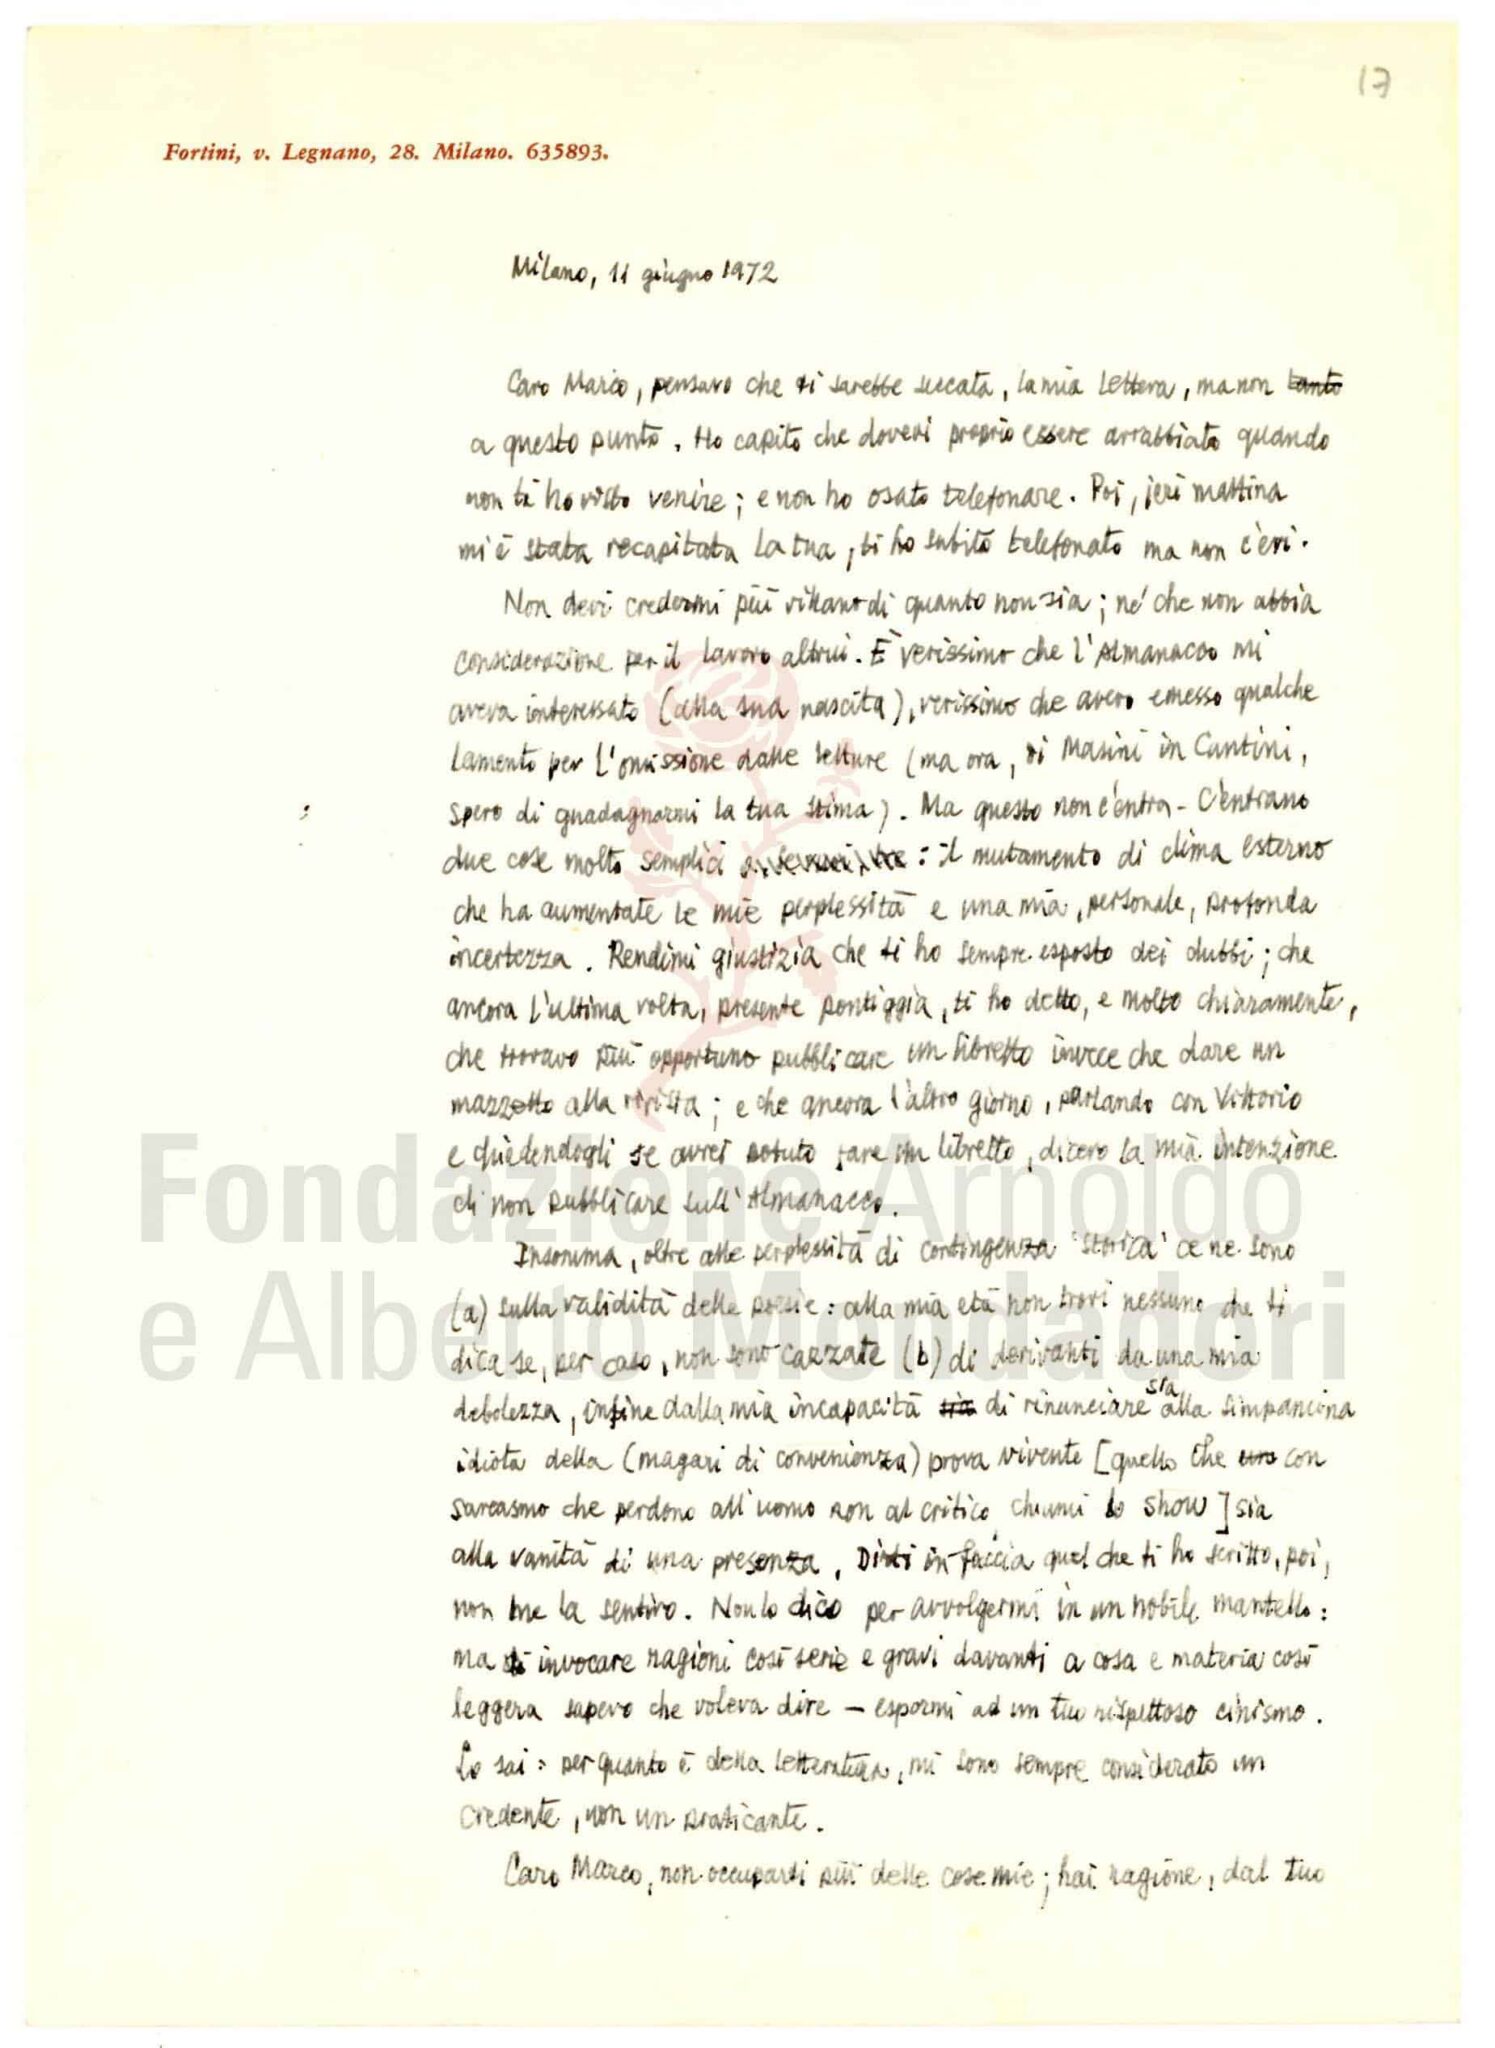 17
Fortini, v. Legnano, 28. Milano. 635893.
Milano, 11 giugno 1972
Caro Marco, pensavo che ti sarebbe seccata, la mia lettera, ma non tanto
a questo punto. Ho capito che dovevi proprio essere arrabbiato quando
non ti ho visto venire; e non ho osato telefonare. Poi, jeri mattina
mi è stata recapitata la tua, ti ho subito telefonato ma non c'eri.
Non devi credermi più villano di quanto non sia; né che non abbia
considerazione per il lavoro altrui. È verissimo che l'Almanacco mi
aveva interessato (alla sua nascita), verissimo che avevo emesso qualche
lamento per l'omissione dalle letture (ma ora, di Masini in Cantini,
spero di guadagnarmi la tua stima). Ma questo non c'entra - C'entrano
due cose molto semplici : il mutamento di clima esterno
che ha aumentate le mie perplessità e una mia, personale, profonda
incertezza. Rendimi giustizia che ti ho sempre esposto dei dubbi; che
ancora l'ultima volta, presente Pontiggia, ti ho detto, e molto chiaramente,
che trovavo più opportuno pubblicare un libretto invece che dare un
mazzetto alla rivista; e che ancora l'altro giorno, parlando con Vittorio
e chiedendogli se avrei potuto fare un libretto, dicevo la mia intenzione
di non pubblicare sull'Almanacco.
Insomma, oltre alle perplessità di contingenza 'storica' ce ne sono
(a) sulla validità delle poesie: alla mia età non trovi nessuno che ti
dica se, per caso, non sono cazzate (b) di derivanti da una mia
debolezza, infine dalla mia incapacità sia di rinunciare sia alla
idiota della (magari di convenienza) prova vivente [quello che con
sarcasmo che perdono all'uomo non al critico chiami lo show] sia
alla vanità di una presenza. Dirti in faccia quel che ti ho scritto, poi,
non me la sentivo. Non lo dico per avvolgermi in un nobile mantello:
ma di invocare ragioni così serie e gravi davanti a cosa e materia così
leggera sapevo che voleva dire — espormi ad un tuo rispettoso cinismo.
Lo sai: per quanto è della letteratura, mi sono sempre considerato un
credente, non un praticante.
Caro Marco, non occuparti più delle cose mie; hai ragione, dal tuo
Fondazione Arnoldo
e Alberto Mondadori